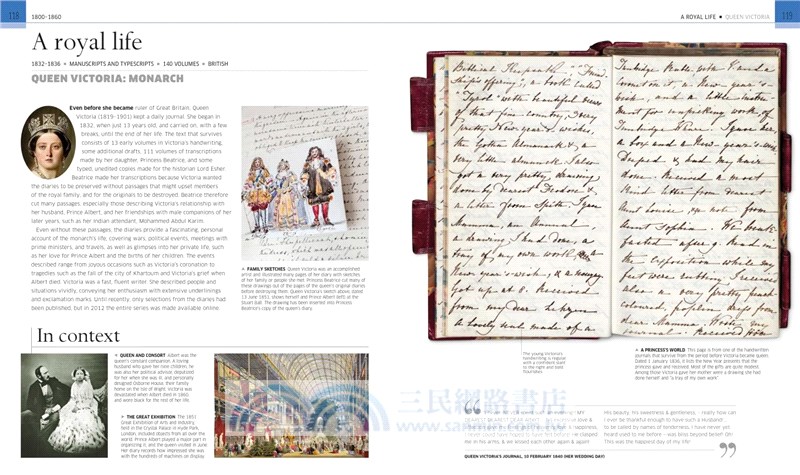 118
1800-1860
A ROYAL LIFE • QUEEN VICTORIA
119
A royal life
1832-1836 ▪ MANUSCRIPTS AND TYPESCRIPTS ▪ 140 VOLUMES ▪ BRITISH
QUEEN VICTORIA: MONARCH
Even before she became ruler of Great Britain, Queen
Victoria (1819-1901) kept a daily journal. She began in
1832, when just 13 years old, and carried on, with a few
breaks, until the end of her life. The text that survives
consists of 13 early volumes in Victoria's handwriting,
some additional drafts, 111 volumes of transcriptions
made by her daughter, Princess Beatrice, and some
typed, unedited copies made for the historian Lord Esher.
Beatrice made her transcriptions because Victoria wanted
the diaries to be preserved without passages that might upset members
of the royal family, and for the originals to be destroyed. Beatrice therefore
cut many passages, especially those describing Victoria's relationship with
her husband, Prince Albert, and her friendships with male companions of her
later years, such as her Indian attendant, Mohammed Abdul Karim.
Even without these passages, the diaries provide a fascinating, personal
account of the monarch's life, covering wars, political events, meetings with
prime ministers, and travels, as well as glimpses into her private life, such
as her love for Prince Albert and the births of her children. The events
described range from joyous occasions such as Victoria's coronation to
tragedies such as the fall of the city of Khartoum and Victoria's grief when
Albert died. Victoria was a fast, fluent writer. She described people and
situations vividly, conveying her enthusiasm with extensive underlinings
and exclamation marks. Until recently, only selections from the diaries had
been published, but in 2012 the entire series was made available online.
▲ FAMILY SKETCHES Queen Victoria was an accomplished
artist and illustrated many pages of her diary with sketches
of her family or people she met. Princess Beatrice cut many of
these drawings out of the pages of the queen's original diaries
before destroying them. Queen Victoria's sketch above, dated
13 June 1851, shows herself and Prince Albert (left) at the
Stuart Ball. The drawing has been inserted into Princess
Beatrice's copy of the queen's diary.
In context
◄ QUEEN AND CONSORT Albert was the
queen's constant companion. A loving
husband who gave her nine children, he
was also her political advisor, deputized
for her when she was ill, and personally
designed Osborne House, their family
home on the Isle of Wight. Victoria was
devastated when Albert died in 1861,
and wore black for the rest of her life.
► THE GREAT EXHIBITION The 1851
Great Exhibition of Arts and Industry,
held in the Crystal Palace in Hyde Park,
London, included objects from all over the
world. Prince Albert played a major part in
organizing it, and the queen visited in June.
Her diary records how impressed she was
with the hundreds of machines on display.
Biblical Keepsake", "Friend-
ship's offering", a book called
"Tyrol" with beautiful views
of that fine country, 3 very
pretty New-year's wishes,
the Gotha Almanack, & a
very little almanack. I also
got a very pretty drawing
done by dearest Feodore &
a letter from Späth. I gave
Mamma, an Annual,
a drawing I had done, a
tray of my own work, a
New-year's wish, &
got up at 8. Received
from my dear Lehzen
a lovely made of a
a New-year's
wish, and a little
for unpicking work of
Tunbridge Ware. I gave her
a box and a New-year's wish.
& had my hair
done. Received a most
kind letter from dearest
Aunt Louise, & a note from
Aunt Sophia. We break-
fasted after 9. I read in
the Exposition while my
hair was
also a very pretty peach
coloured, poplin dress from
dear Mamma,
The young Victoria's
handwriting is regular
with a confident slant
to the right and bold
flourishes
▲ A PRINCESS'S WORLD This page is from one of the handwritten
journals that survive from the period before Victoria became queen.
Dated 1 January 1836, it lists the New Year presents that the
princess gave and received. Most of the gifts are quite modest.
Among those Victoria gave her mother were a drawing she had
done herself and "a tray of my own work".
MY
DEAREST DEAR
love &
happiness,
He clasped
me in his arms, & we kissed each other again & again!
His beauty, his sweetness & gentleness, - really how can
I ever be thankful enough to have such a Husband! ...
to be called by names of tenderness, I have never yet
heard used to me before - was bliss beyond belief! Oh!
This was the happiest day of my life!
QUEEN VICTORIA'S JOURNAL, 10 FEBRUARY 1840 (HER WEDDING DAY)
三民網路書店